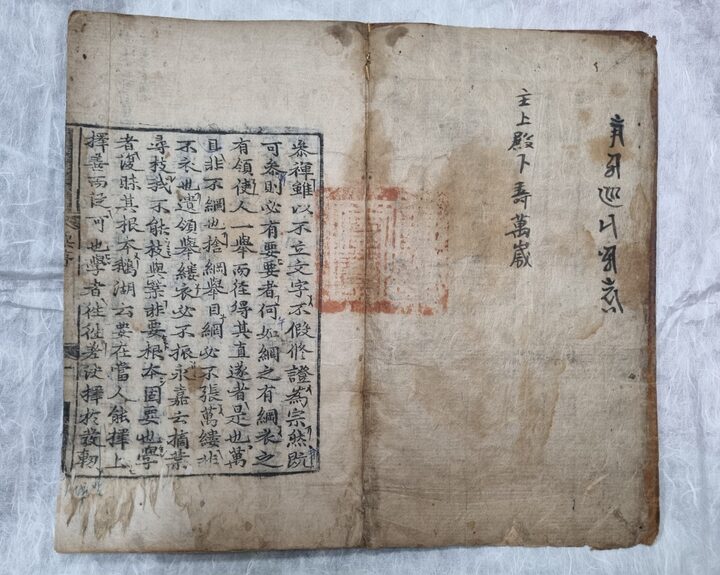 主上殿下壽萬歲
叅禪雖以不立文字不假修證為宗然既
可叅則必有要要者何如網之有綱衣之
有領使人一舉而徑得其直遂者是也萬
目非不網也捨綱舉目網必不張萬縷非
不衣也遺領舉縷衣必不振永嘉云摘葉
尋枝我不能枝與葉非要根本固要也學
者復昧其根本鵝湖云要在當人能擇上
擇善而從可也學者往往差決擇於發軔